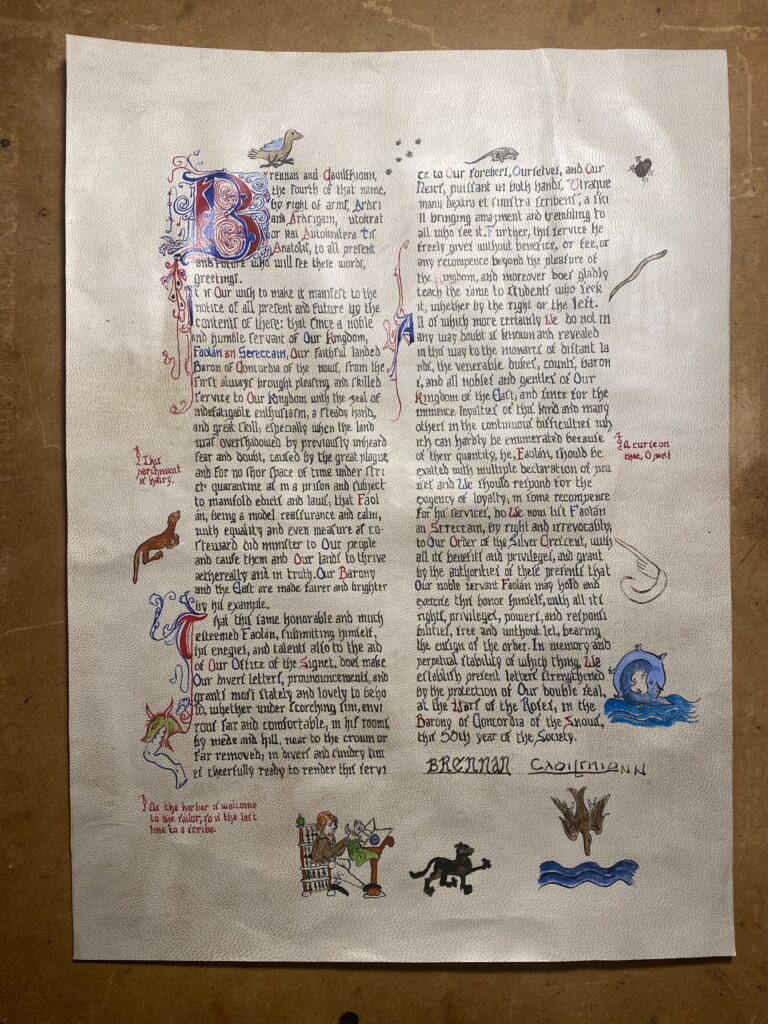 Brennan and Caoilfhionn,
the fourth of that name,
by right of arms, Ardri
and Ardrigain, utokrat
or kai Autokratera Tis
Anatolis, to all present
and future who will see these words,
greetings.
It is Our wish to make it manifest to the
notice of all present and future by the
contents of these: that since a noble
and humble servant of Our Kingdom,
Faolán an Sreccain, Our faithful landed
Baron of Concordia of the nows, from the
first always brought pleasing and skilled
service to Our Kingdom with the zeal of
indefatigable enthusiasm, a steady hand,
and great skill; especially when the land
was overshadowed by previously unheard
fear and doubt, caused by the great plague,
and for no shor space of time under stri
ct quarantine as in a prison and subject
to manifold edicts and laws, that Faol
án, being a model reassurance and calm,
with equality and even measure as co-
steward did minister to Our people
and cause them and Our lands to thrive
aethereally and in truth. Our Barony
and the East are made fairer and brighter
by his example.
That this same honorable and much
esteemed Faolán, submitting himself,
his enegies, and talents also to the aid
of Our Office of the Signet, does make
Our divers letters, pronouncements, and
grants most stately and lovely to beho
ld, whether under scorching sun, envi
rons fair and comfortable, in his rooms
by mede and hill, near to the crown or
far removed; in divers and sundry sun
et cheerfully ready to render this servi
This
parchment
is hairy.
As the harbor is welcome
to the sailor, so is the last
line to a scribe.
ce to Our forebers, Ourselves, and Our
Heirs, puissant in both hands, "Utraque
manu dextra et sinistra scribens", a ski
ll bringing amazment and trembling to
all who see it. Further, this service he
freely gives without benefice, or fee, or
any recompence beyond the pleasure of
the Kingdom, and moreover does gladly
teach the same to students who seek
it, whether by the right or the left.
All of which more certainly We do not in
any way doubt is known and revealed
in this way to the monarcs of distant la
nds, the venerable dukes, counts, baron
s, and all nobles and gentles of Our
Kingdom of the East; and since for the
immence loyalties of this kind and many
others in the continuous difficulties wh
ich can hardly be enumerated because
of their quantity, he, Faolán, should be
exalted with multiple declaration of pra
ises and We should respond for the
exigency of loyalty; in some recompence
for his services, do We now list Faolán
an Sreccain, by right and irrevocably,
to Our Order of the Silver Crescent, with
all its benefits and privileges, and grant
by the authorities of these presents that
Our noble servant Faolán may hold and
exercise this honor himself, with all its
rights, privileges, powers, and responsi
bilities, free and without let, bearing
the ensign of the order. In memory and
perpetual stability of which thing, We
establish present letters strengthened
by the protection of Our double seal,
at the Wars of the Roses, in the
Barony of Concordia of the Snows,
this 56th year of the Society.
Brennan Caoilfhionn
A curse on
thee, O pen!